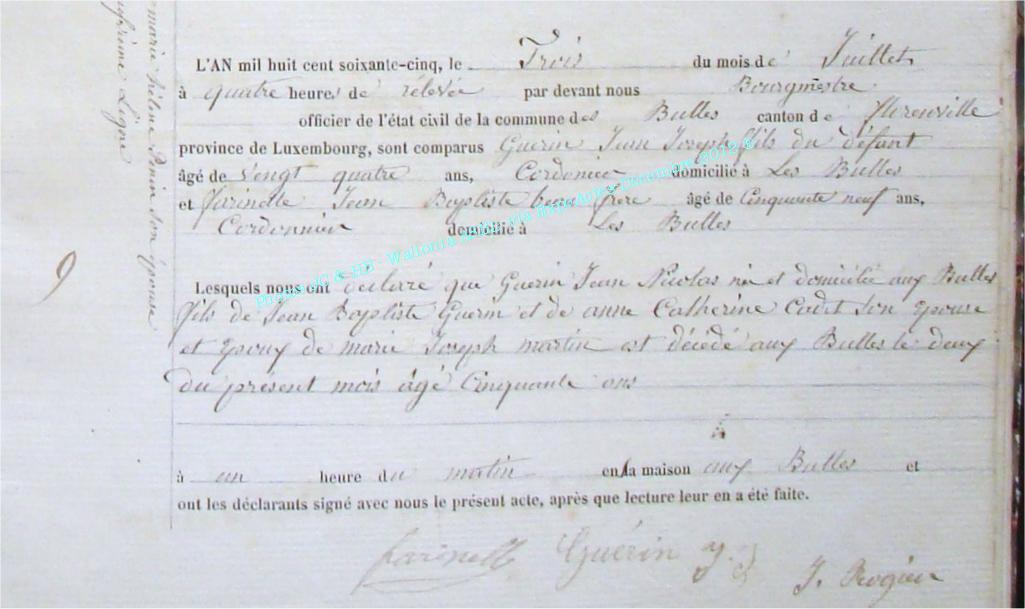 L'AN mil huit cent soixante-cinq, le Trois du mois de Juillet
à quatre heures de rélevée par devant nous Bourgmestre
officier de l'état civil de la commune des Bulles canton de florenville
province de Luxembourg, sont comparus Guerin Jean Joseph fils du défunt
âgé de Vingt quatre ans, Cordonnier domicilié à Les Bulles
et farinelle Jean Baptiste beau frere âgé de Cinquante neuf ans,
Cordonnier domicilié à Les Bulles
Lesquels nous ont déclaré que Guerin Jean Nicolas né et domicilié aux Bulles
fils de Jean Baptiste Guerin et de anne Catherine son Epouse
et Epoux de marie Joseph martin est décédé aux Bulles le deux
du présent mois âgé Cinquante ans
à un heure du matin en la maison aux Bulles et
ont les déclarants signé avec nous le présent acte, après que lecture leur en a été faite.
farinelle Guérin J. J. J. Rogier
marie son épouse
9
Photos JC & HB - Wallonia